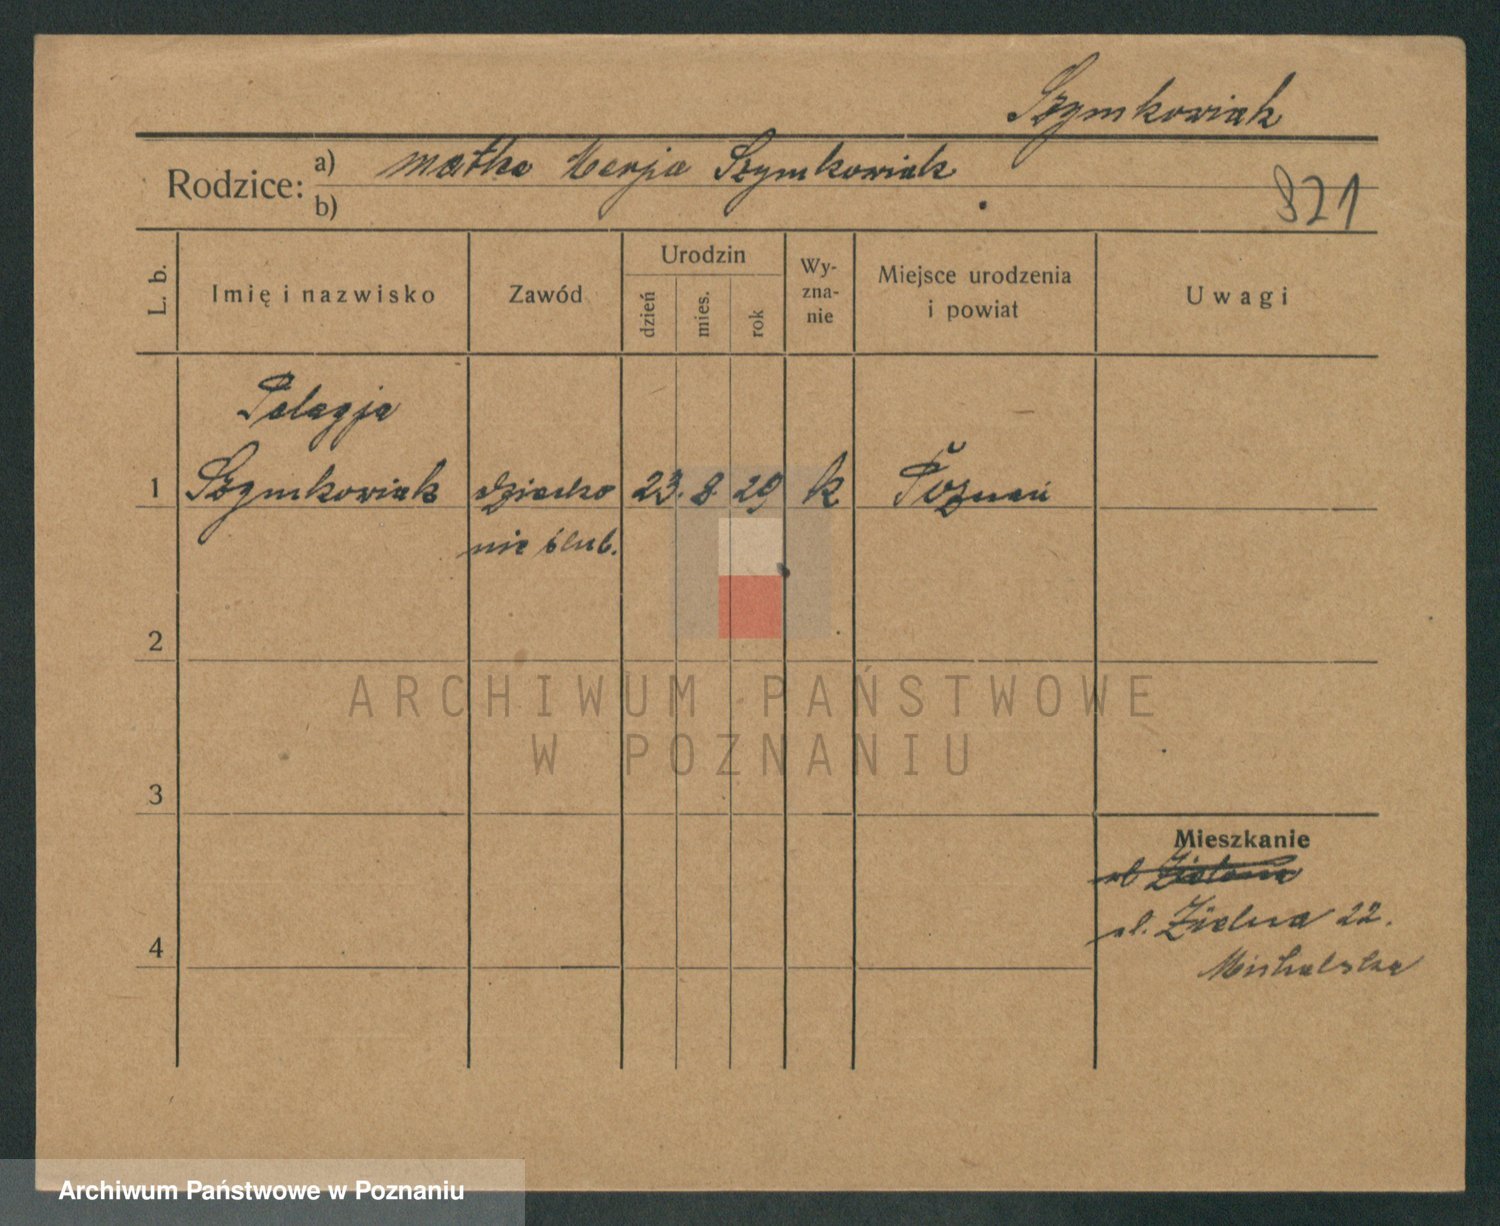 Szymkowiak
Rodzice: a) matka Marja Szymkowiak
b)
821
L. b.
Imię i nazwisko
Zawód
Urodzin
dzień
mies.
rok
Wy-
zna-
nie
Miejsce urodzenia
i powiat
Uwagi
Pelagja
1 Szymkowiak dziecko 23. 8. 29 k Poznań
nie ślub.
2
ARCHIWUM PAŃSTWOWE
W POZNANIU
3
Mieszkanie
ul. Zielna 22.
4
Michalska
Archiwum Państwowe w Poznaniu